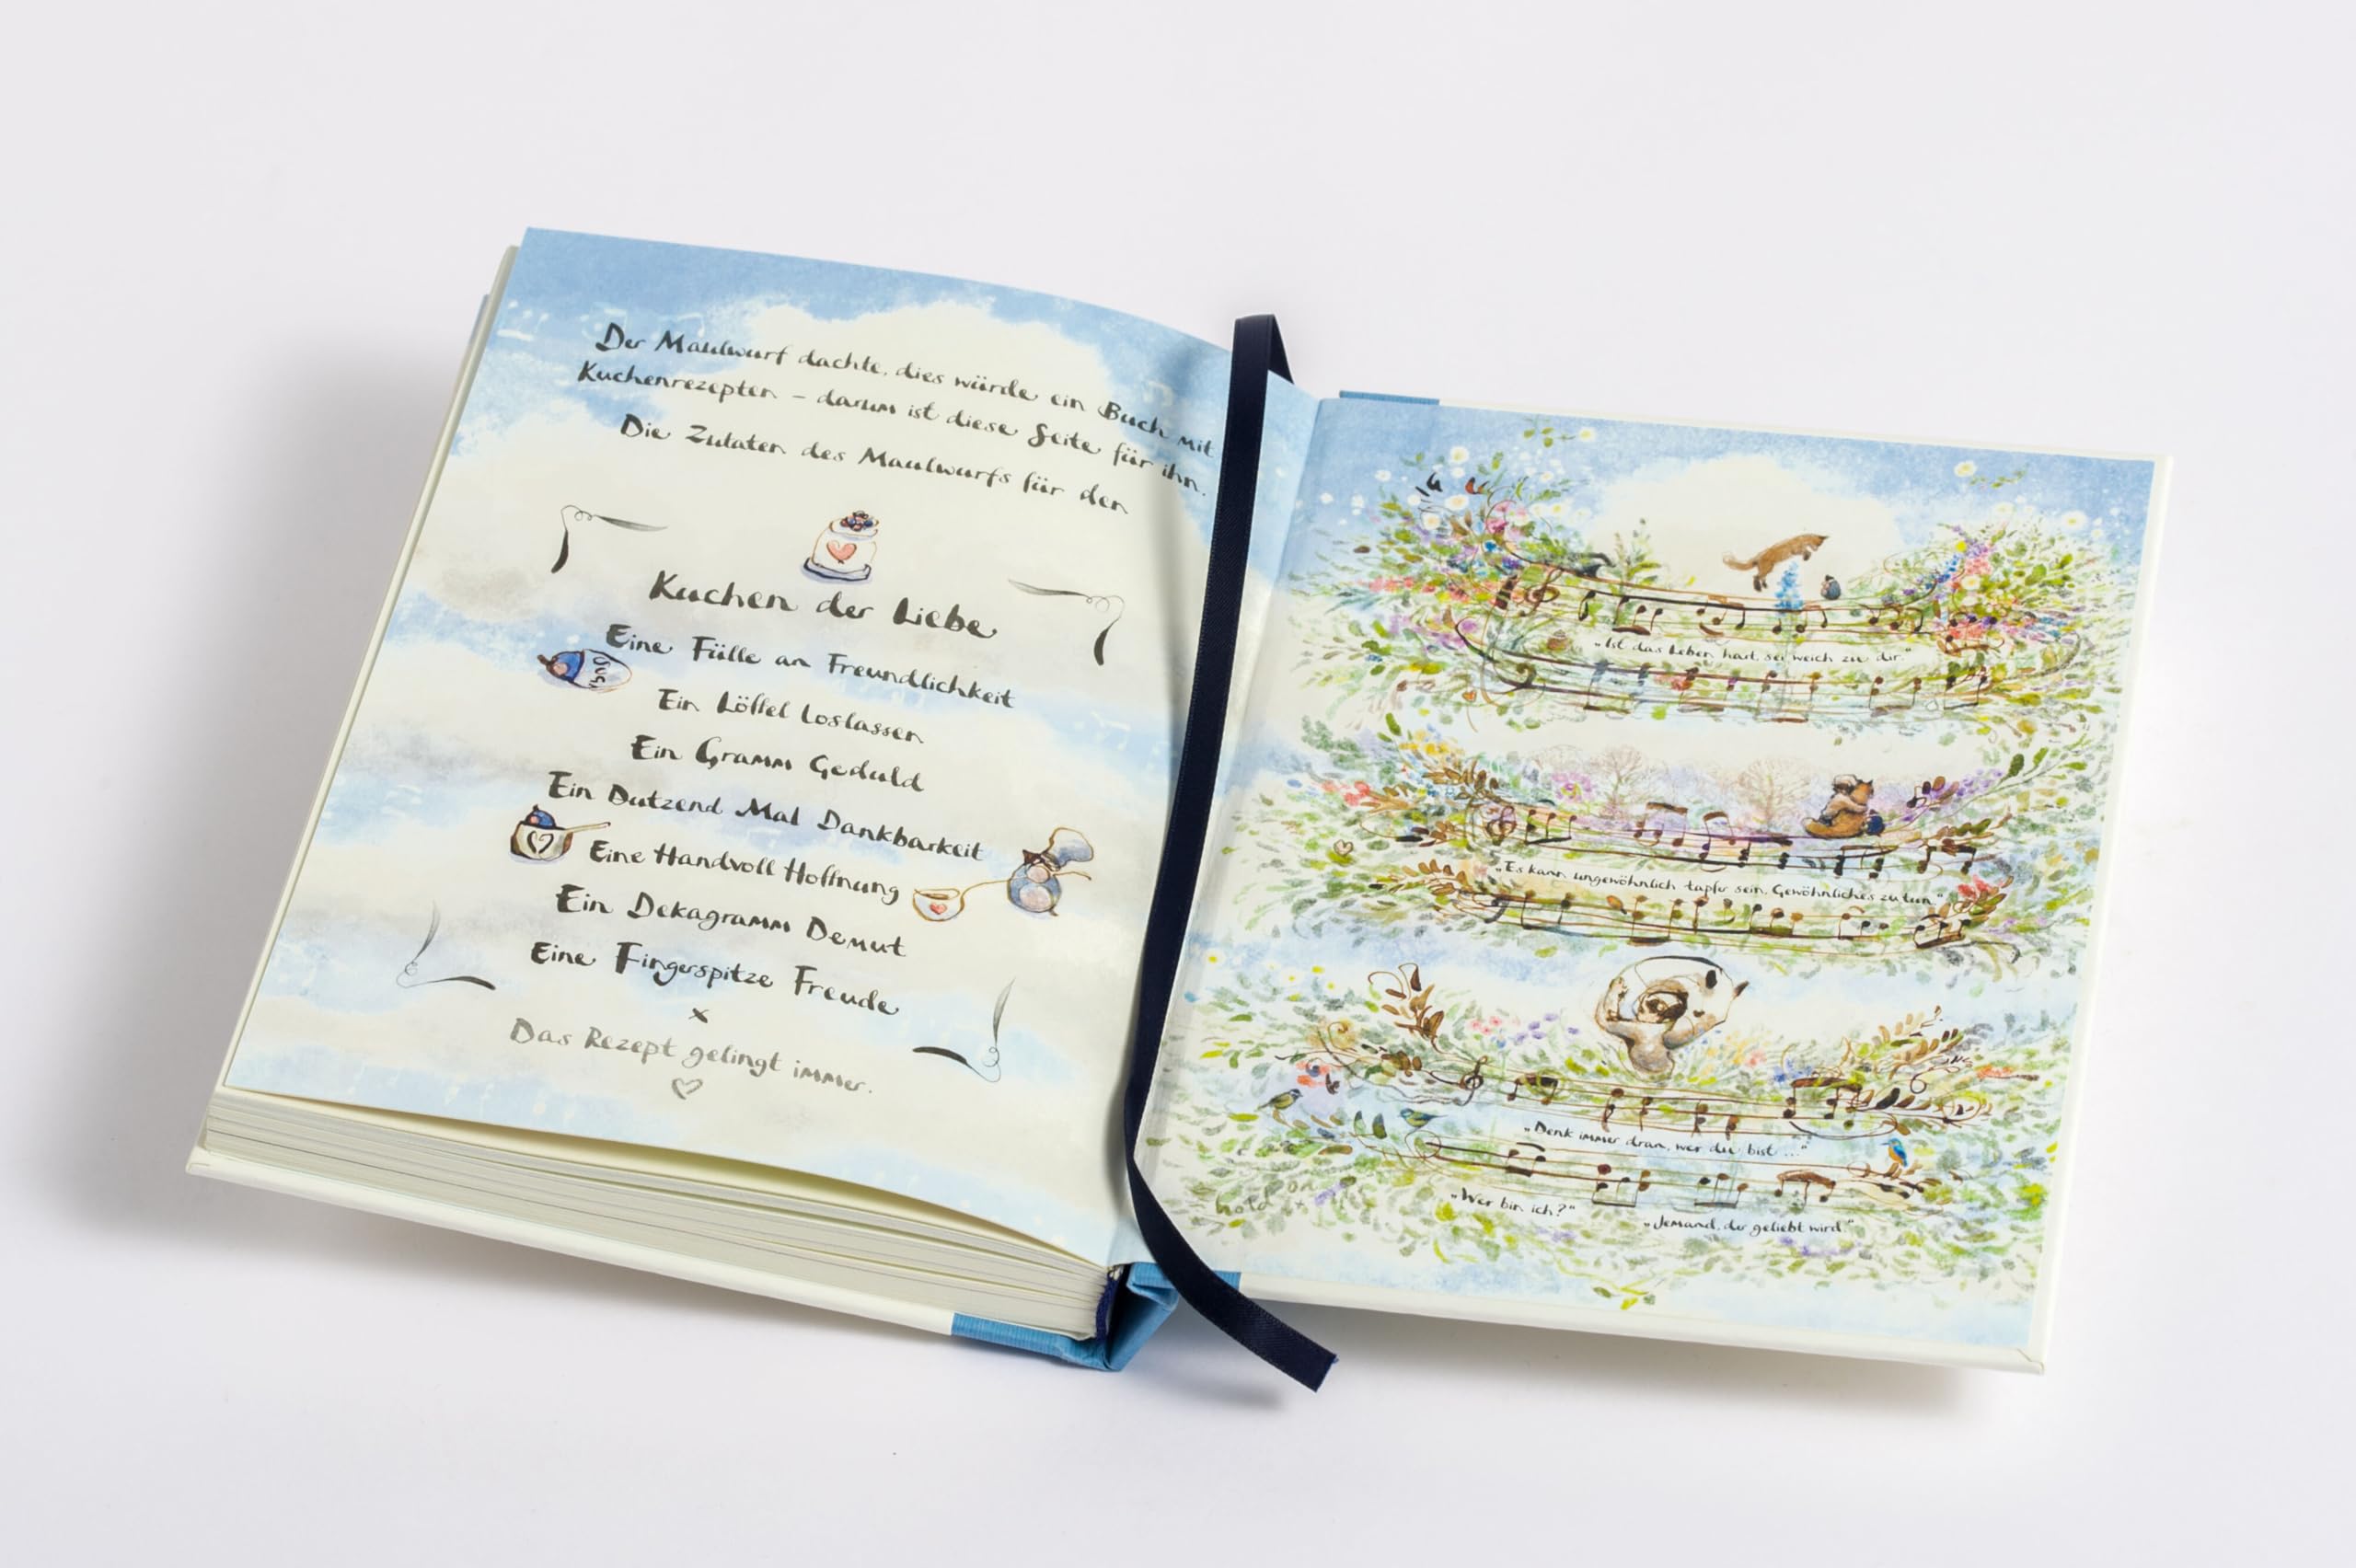 Der Maulwurf dachte, dies würde ein Buch mit
Kuchenrezepten – darum ist diese Seite für ihn.
Die Zutaten des Maulwurfs für den
Kuchen der Liebe
Eine Fülle an Freundlichkeit
Ein Löffel Loslassen
Ein Gramm Geduld
Ein Dutzend Mal Dankbarkeit
Eine Handvoll Hoffnung
Ein Dekagramm Demut
Eine Fingerspitze Freude
x
Das Rezept gelingt immer.
„Ist das Leben hart, sei weich zu dir.“
„Es kann ungewöhnlich tapfer sein, Gewöhnliches zu tun.“
„Denk immer dran, wer du bist ...“
„Wer bin ich?“
„Jemand, der geliebt wird.“
hold on